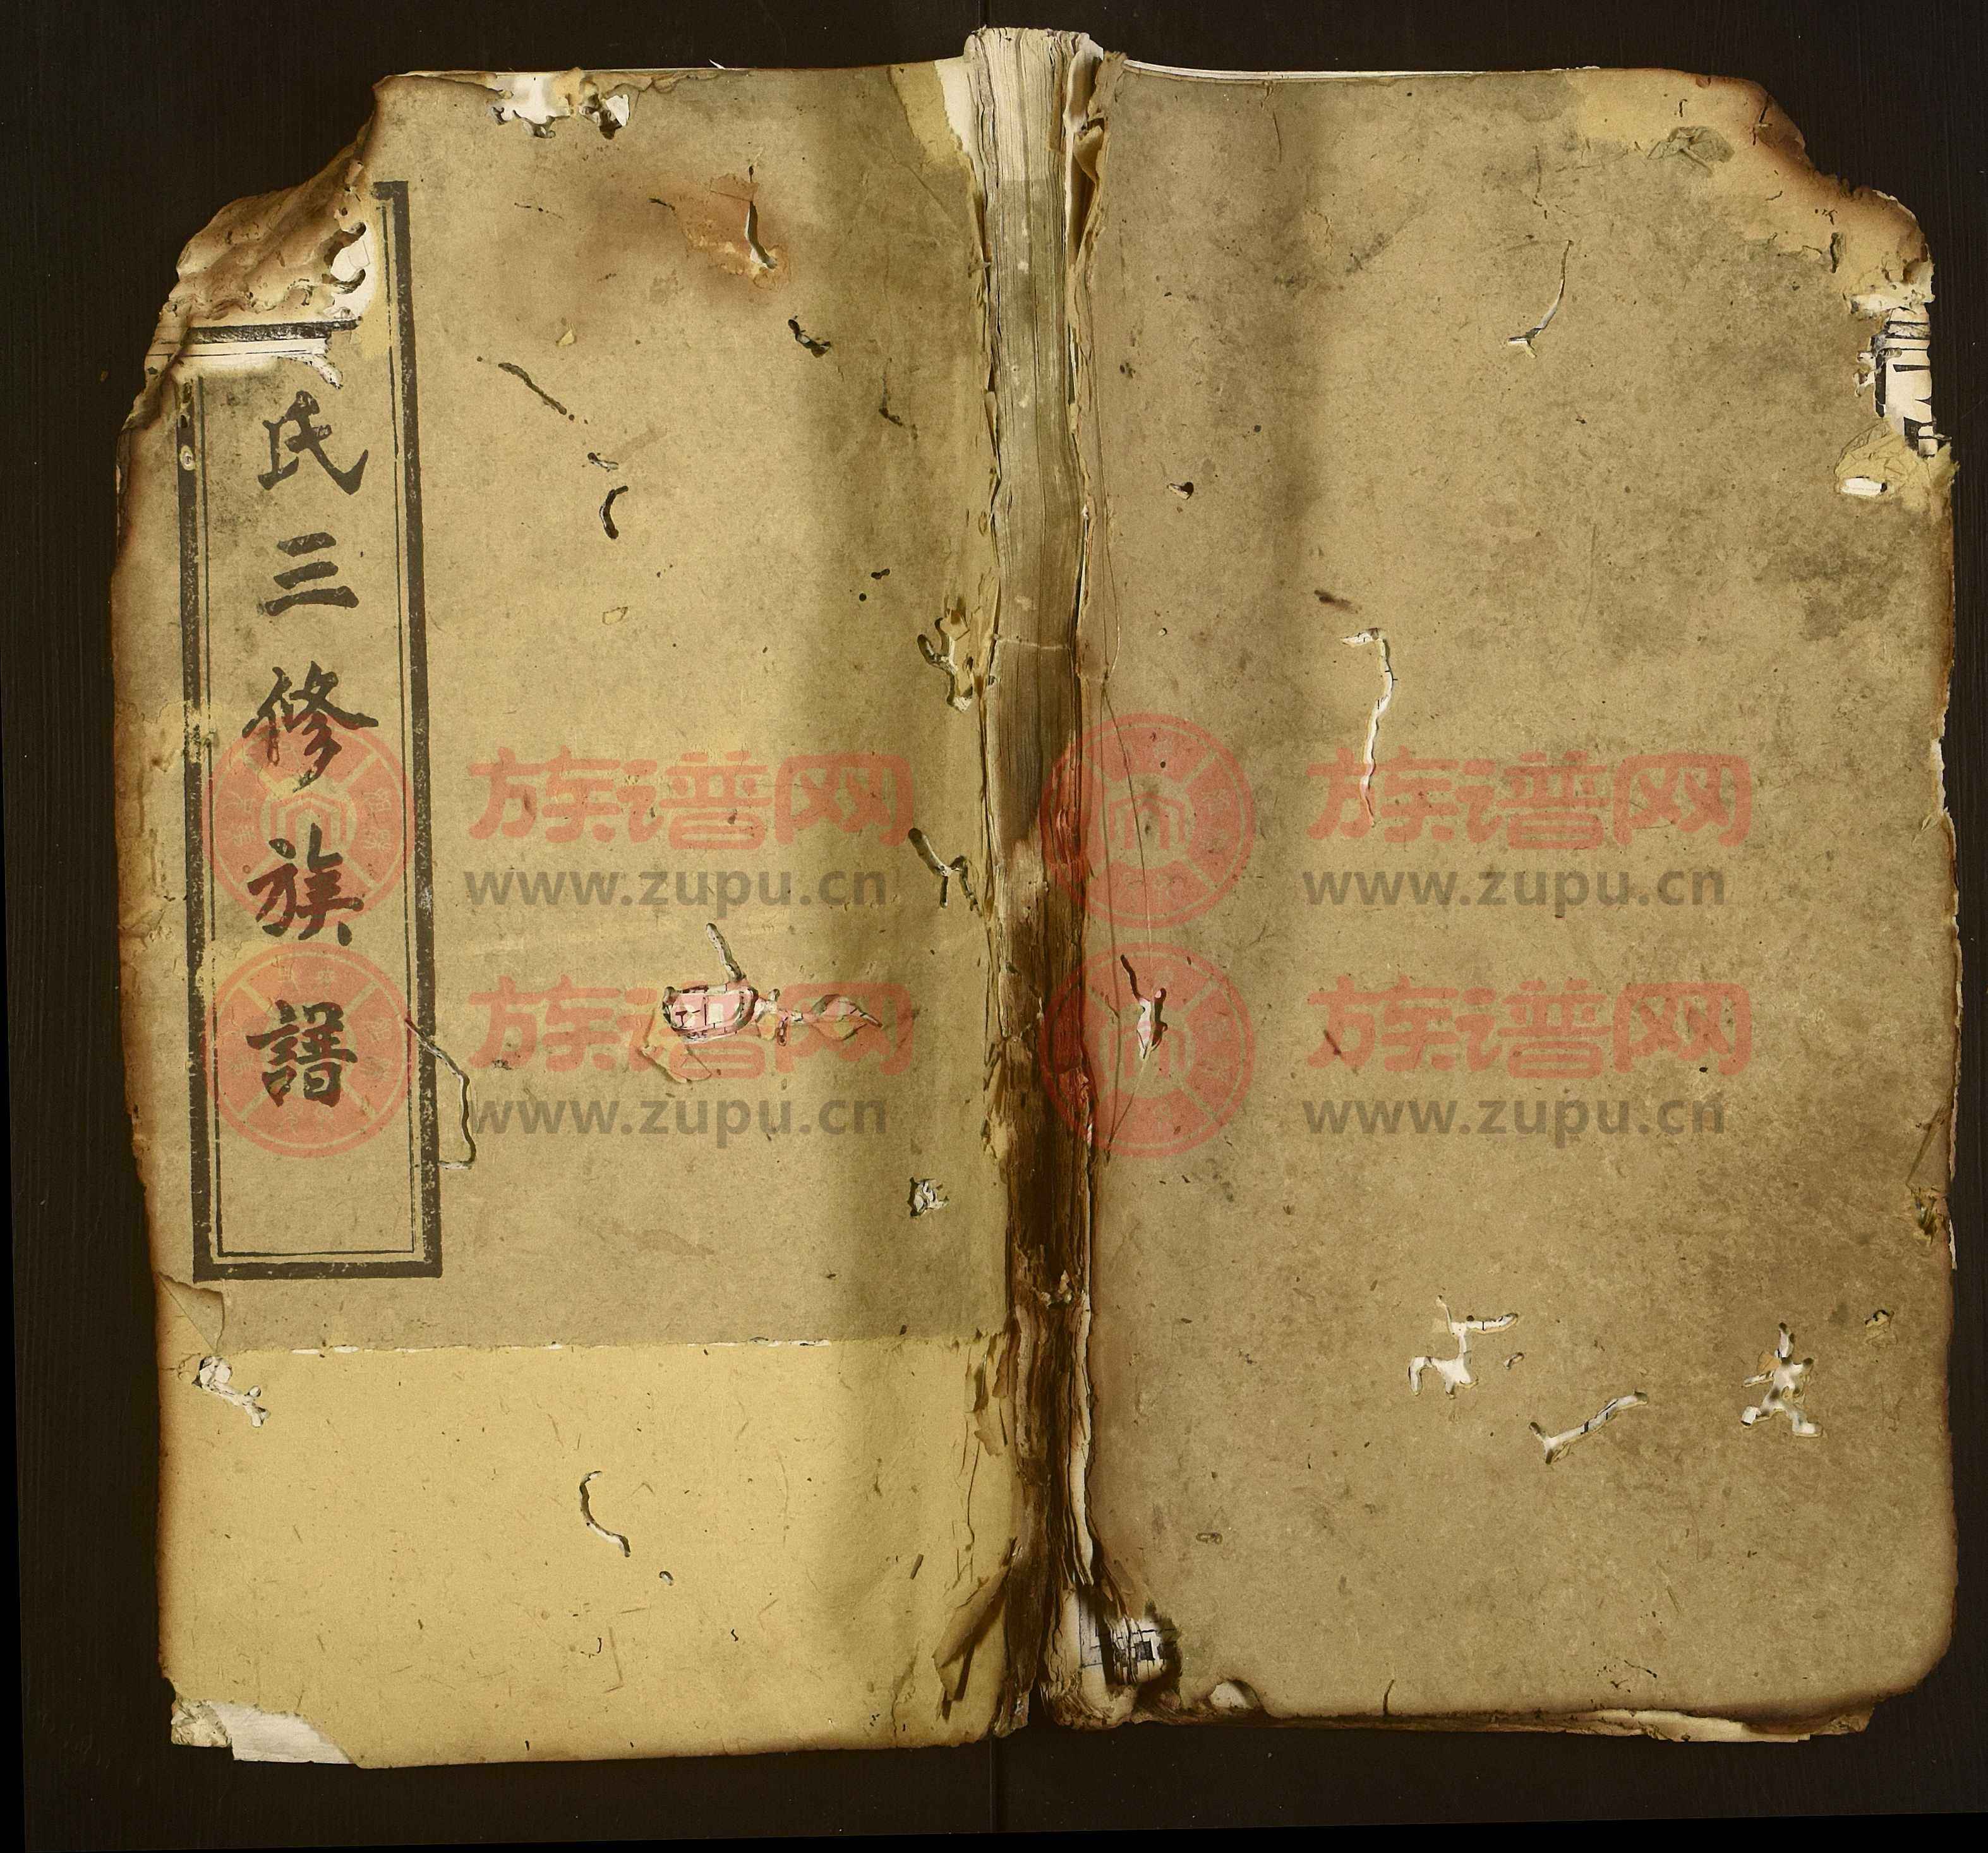 氏三修族譜
族谱网
www.zupu.cn
族谱网
www.zupu.cn
族谱网
www.zupu.cn
族谱网
www.zupu.cn